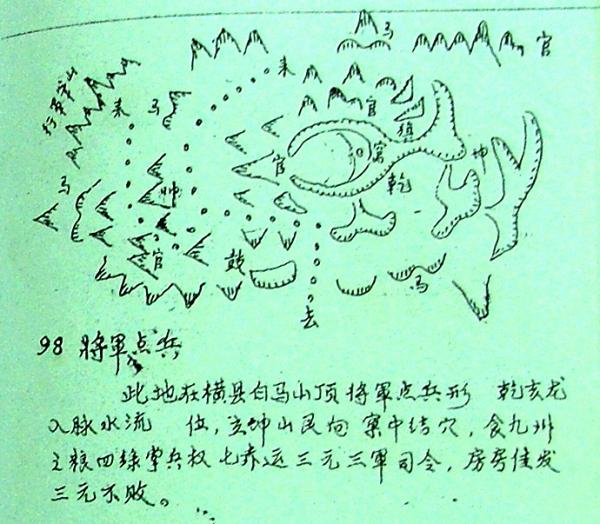 马
官
来
来
马
官
镇
官
窝
坤
乾
马
帅
官
鼓
马
去
98 將軍点兵
此地在横县白马山顶 将軍点兵形 乾亥龙
入脉水流 位,立坤山艮向 窝中结穴,食九州
之粮四绿掌兵权 七赤运三元三軍司令,房房佳发
三元不败。